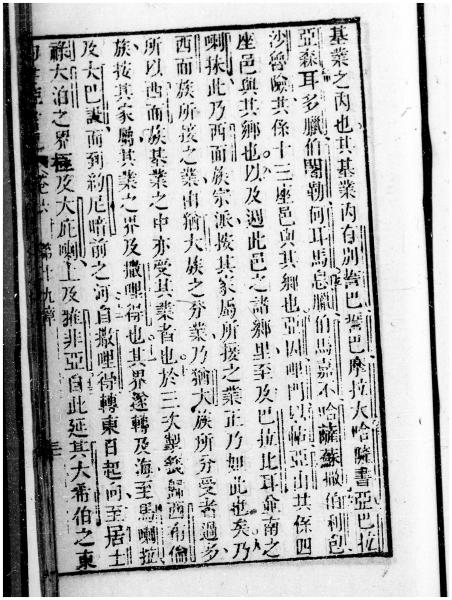 基業之內也其基業內有別誓巴誓巴摩拉大哈薩書亞巴拉
亞森耳多臘伯閣勒何耳馬息臘伯馬嘉不哈薩蘇撒伯利包
沙魯險其係十三座邑與其鄉也亞因哩門以帖亞山其係四
座邑與其鄉也以及週此邑之諸鄉里至及巴拉比耳爺南之
喇抹此乃西面族宗派按其家屬所接之業正乃如此也矣乃
西面族所接之業由猶大族之分業乃猶大族所分受者過多
所以西面族基業之中亦受其業者也於三次掣籤歸西布倫
族按其家屬其業之界及撒哩得也其界遂轉及海至馬喇拉
及大巴設面到約尼暗前之河自撒哩得轉東日起向至居士
祿大泊之界極及大庇喇上及雅非亞自此延其大希伯之東
第十九章